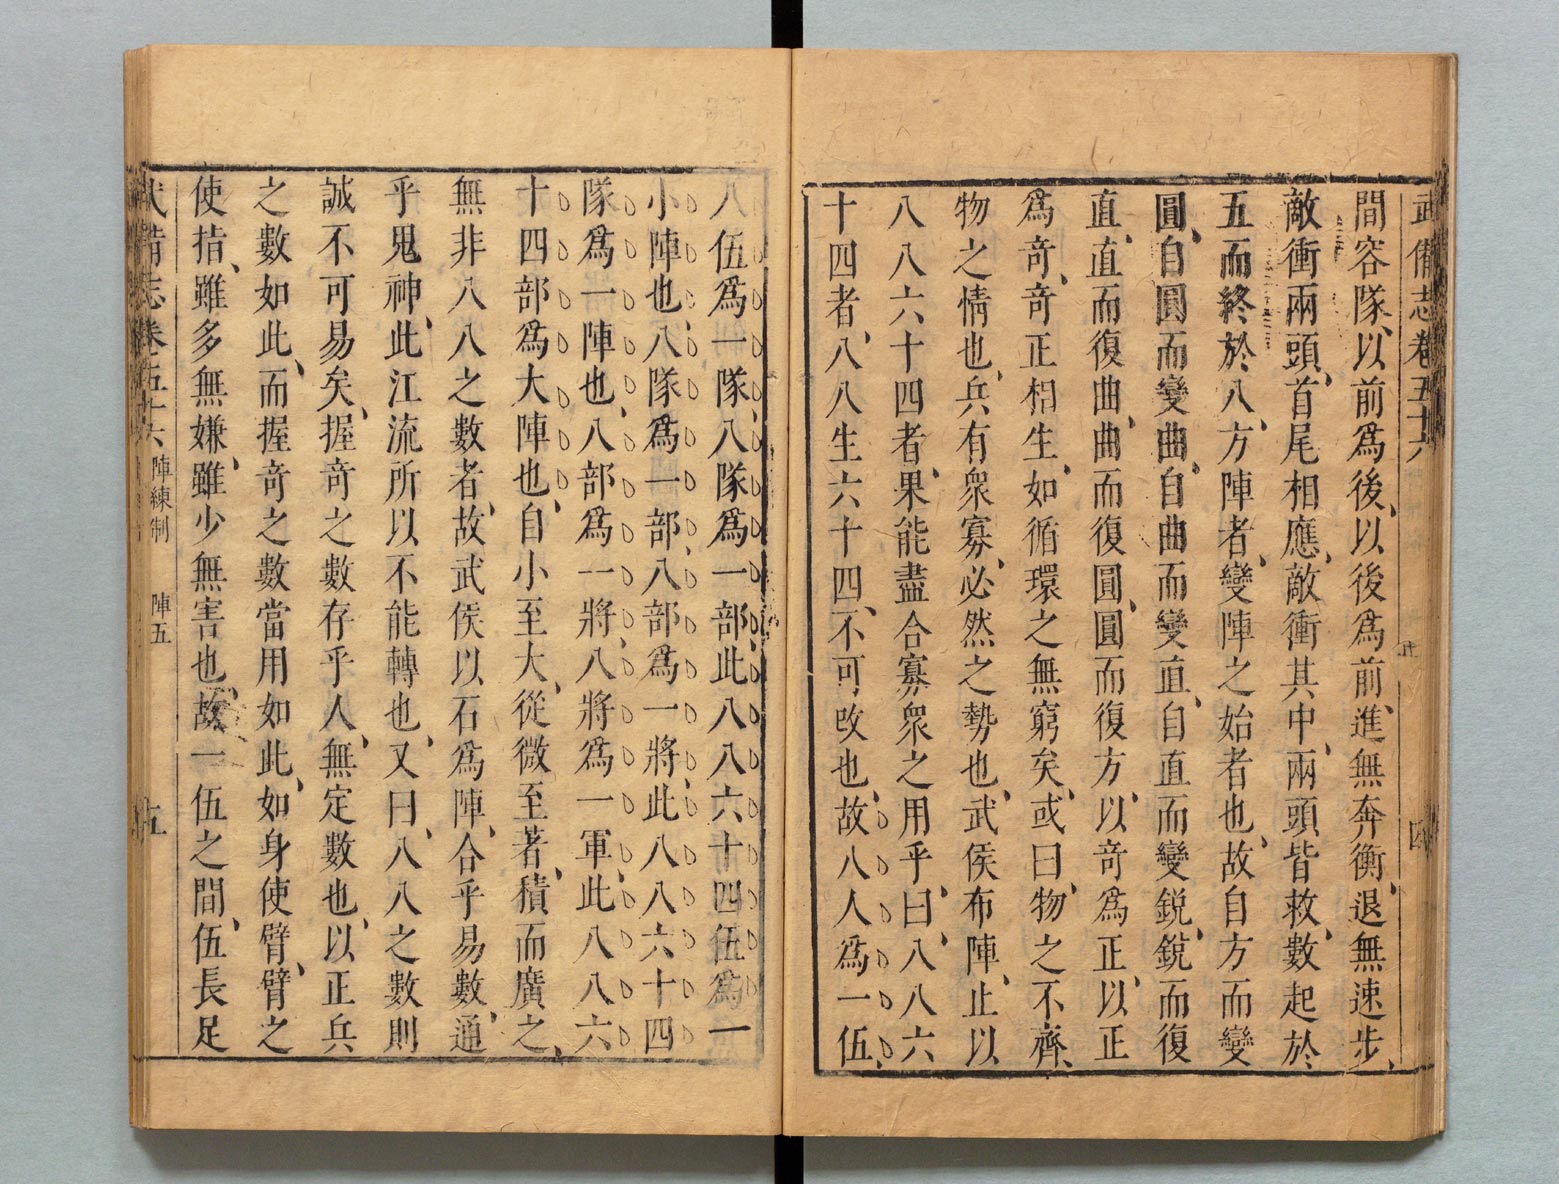 武備志卷五十六 四
間容隊、以前爲後、以後爲前、進無奔衝、退無速步、
敵衝兩頭、首尾相應、敵衝其中、兩頭皆救、數起於
五而終於八、方陣者、變陣之始者也、故自方而變
圓、自圓而變曲、自曲而變直、自直而變銳、銳而復
直、直而復曲、曲而復圓、圓而復方、以奇爲正、以正
爲奇、奇正相生、如循環之無窮矣、或曰、物之不齊、
物之情也、兵有衆寡、必然之勢也、武侯布陣、止以
八八六十四者、果能盡合寡衆之用乎、曰、八八六
十四者、八八生六十四、不可改也、故八人爲一伍、
八伍爲一隊、八隊爲一部、此八八六十四伍爲一
小陣也、八隊爲一部、八部爲一將、此八八六十四
隊爲一陣也、八部爲一將、八將爲一軍、此八八六
十四部爲大陣也、自小至大、從微至著、積而廣之、
無非八八之數者、故武侯以石爲陣、合乎易數、通
乎鬼神、此江流所以不能轉也、又曰、八八之數則
誠不可易矣、握奇之數存乎人、無定數也、以正兵
之數如此、而握奇之數當用如此、如身使臂、臂之
使指、雖多無嫌、雖少無害也、故一伍之間、伍長足
武備志卷五十六 陣練制 陣五 五